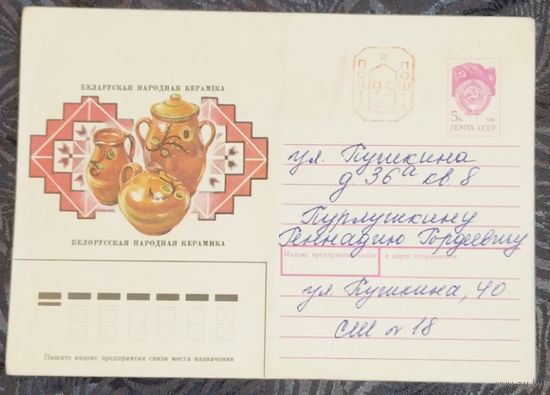 БЕЛАРУСКАЯ НАРОДНАЯ КЕРАМІКА
БЕЛОРУССКАЯ НАРОДНАЯ КЕРАМИКА
Пишите индекс предприятия связи места назначения
ПОЧТА
95
5к
ПОЧТА СССР
ул. Пушкина
д. 36а кв. 8
Пурлушкину
Геннадию Гордеевичу
Индекс предприятия связи и адрес отправителя
ул. Пушкина, 40
СШ № 18